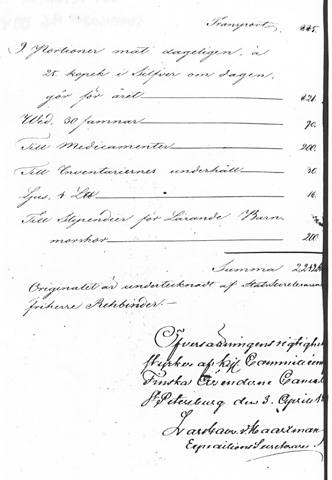 Transport 
9 Portioner mat dageligen, à
25 kopek i Silfver om dagen,
gör för året 821.
Wed, 30 famnar 70.
Till Medicamenter 200.
Till Inventariernes underhåll 30
Ljus, 4 16.
Till Stipendier för Lärande Barn-
morskor 200.
Summa
Originalet är undertecknadt af StatsSecreteraren
friherre Rehbinder.—
Öfversättningens riglighet
styrker af Kjl Committéen
Finska Ärendarne Cancel
St Petersburg den 3. April
Haartman
Expeditions Secreterare